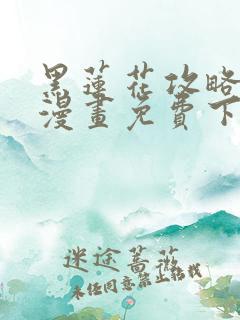 黑蓮花攻略
漫畫免費下
迷途薔薇
未经同意禁止转载